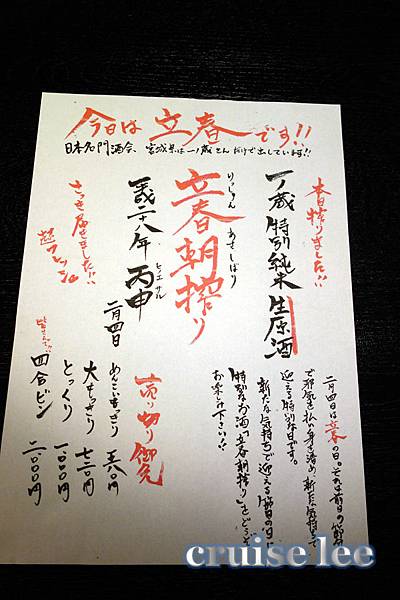 今日は立春です!!
日本名門酒会、宮城県は一ノ蔵さんだけで出しています!!
本日搾りました!!
一ノ蔵 特別純米 生原酒
りっしゅん あさしぼり
立春朝搾り
平成二十八年 丙申 二月四日
ヒノエサル
さっき届きました!!
超フレッシュ
二月四日は立春の日。それは前日の節分
で邪気を払い身を清め、新たな気持ちで
迎える特別な日です。
新たな気持ちで迎える節目の日に
特別なお酒「立春朝搾り」をどうぞ
お楽しみ下さい!!
売り切り御免
めんこいもっきり 五八〇円
大もっきり 七二〇円
とっくり 一、〇〇〇円
皆さんで
四合ビン 二、〇〇〇円
cruise lee